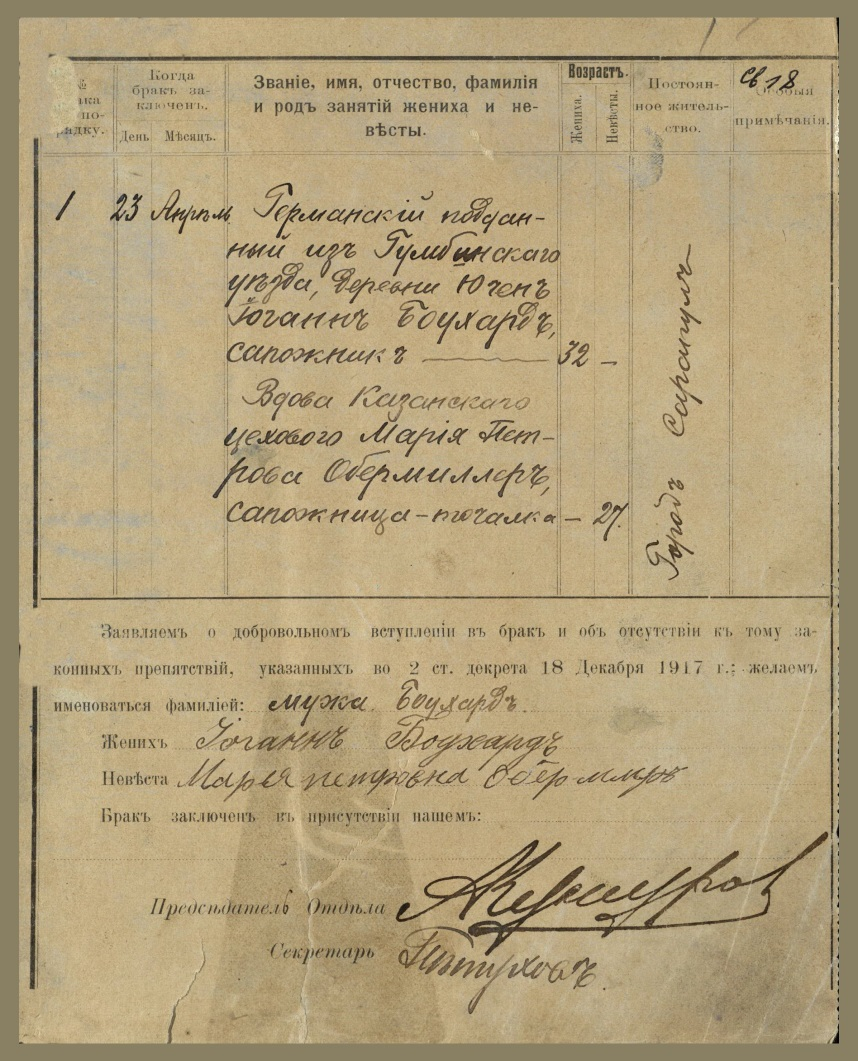 св 18
№
по-
рядку.
Когда
бракъ за-
ключенъ.
День
Мѣсяцъ.
Званіе, имя, отчество, фамилія
и родъ занятій жениха и не-
вѣсты.
Возрастъ.
Жениха.
Невѣсты.
Постоян-
ное житель-
ство.
Особыя
примѣчанія.
1 23 Апрѣль Германскій поддан-
ный изъ Гумбинскаго
уѣзда, деревни Юченъ
Іоганнъ Боухардъ,
сапожникъ 32 —
Вдова Казанскаго
цехового Марія Пет-
рова Обермиллеръ,
сапожница-точалка — 27.
Городъ Сарапулъ
Заявляемъ о добровольномъ вступленіи въ бракъ и объ отсутствіи къ тому за-
конныхъ препятствій, указанныхъ во 2 ст. декрета 18 Декабря 1917 г.; желаемъ
именоваться фамиліей: мужа Боухардъ
Женихъ Іоганнъ Бодхардъ
Невѣста Марья петровна
Бракъ заключенъ въ присутствіи нашемъ:
Предсѣдатель Отдѣла
Секретарь Пѣтуховъ.